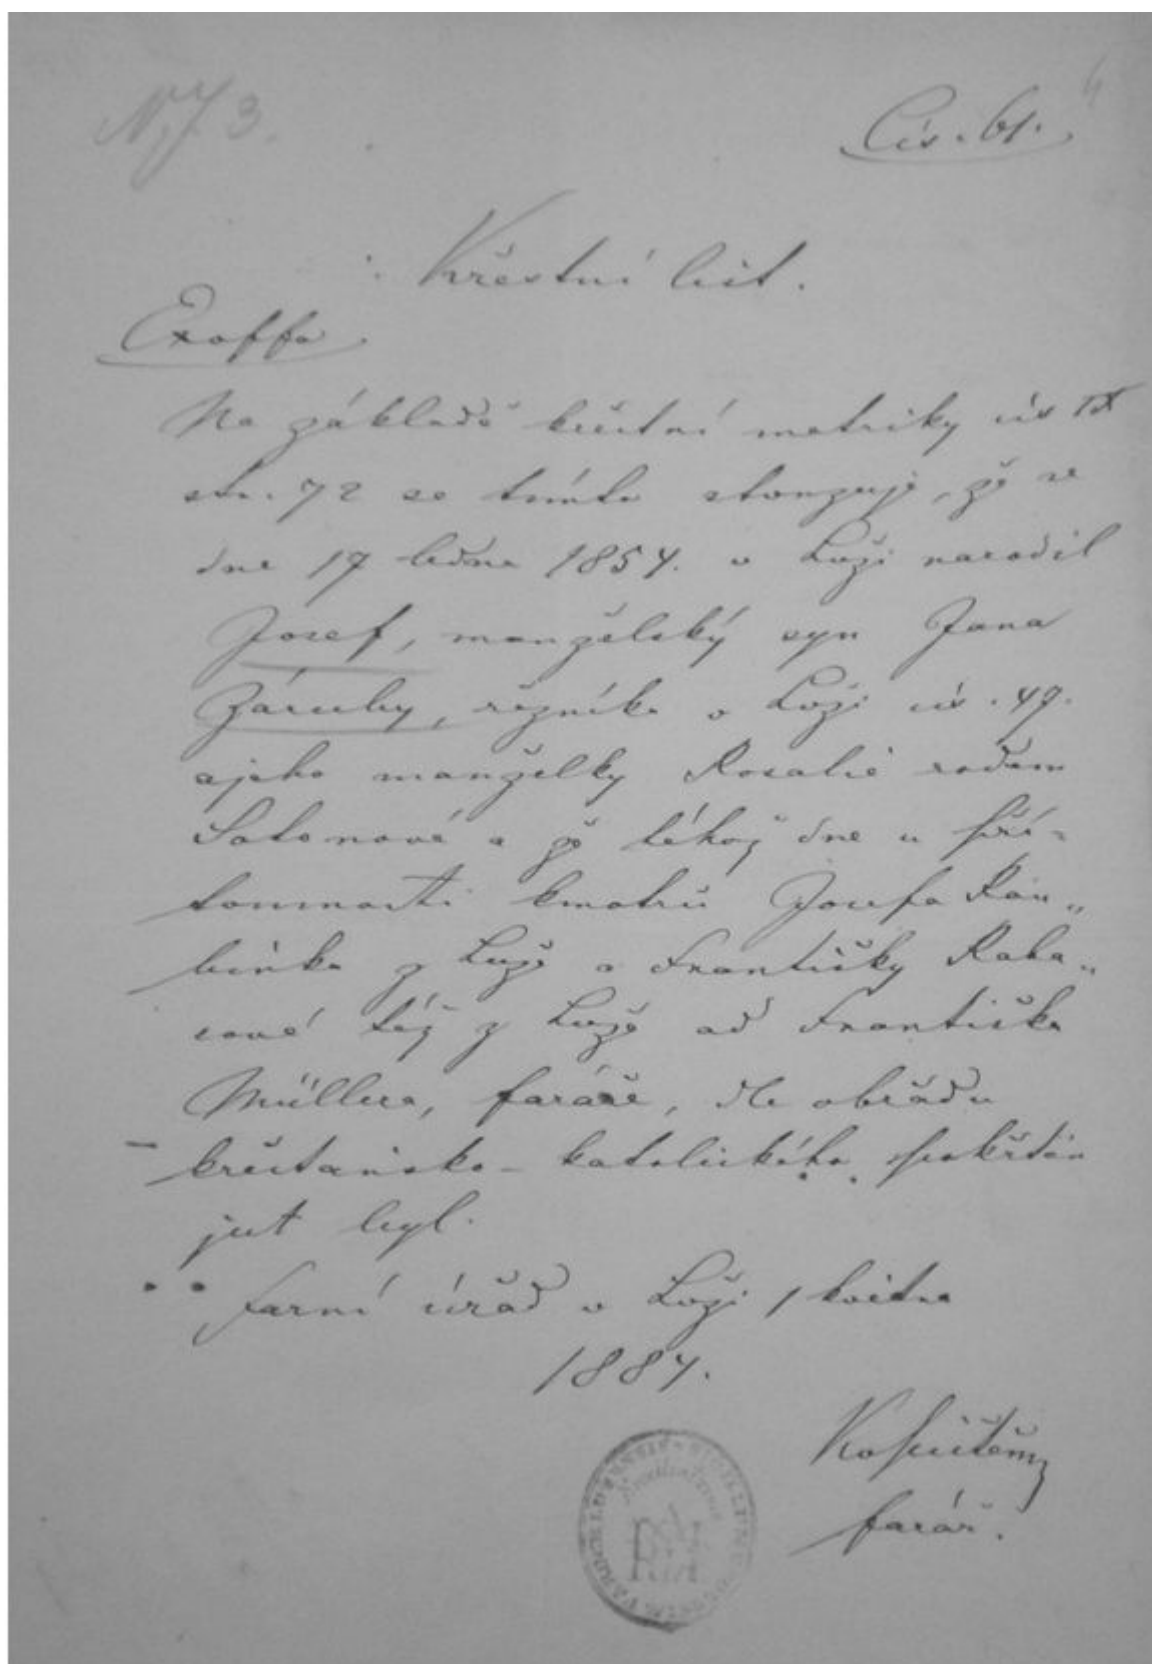 N. 3.
Čís. 61.
Křestní list.
Exoffo.
Na základě křestní matriky čís IX
str. 72 se tímto stvrzuje, že se
dne 17 ledna 1854. v Luži narodil
Josef, manželský syn Jana
Záruby, řezníka v Luži čís. 49.
a jeho manželky Rosalie rodem
a že téhož dne u pří=
tomnosti kmotrů Josefa
z Luže a Františky
též z Luže od Františka
Müllera, faráře, dle obřadu
křesťansko-katolického pokřtěn
jest byl.
Farní úřad v Luži 1 května
1887.
farář.